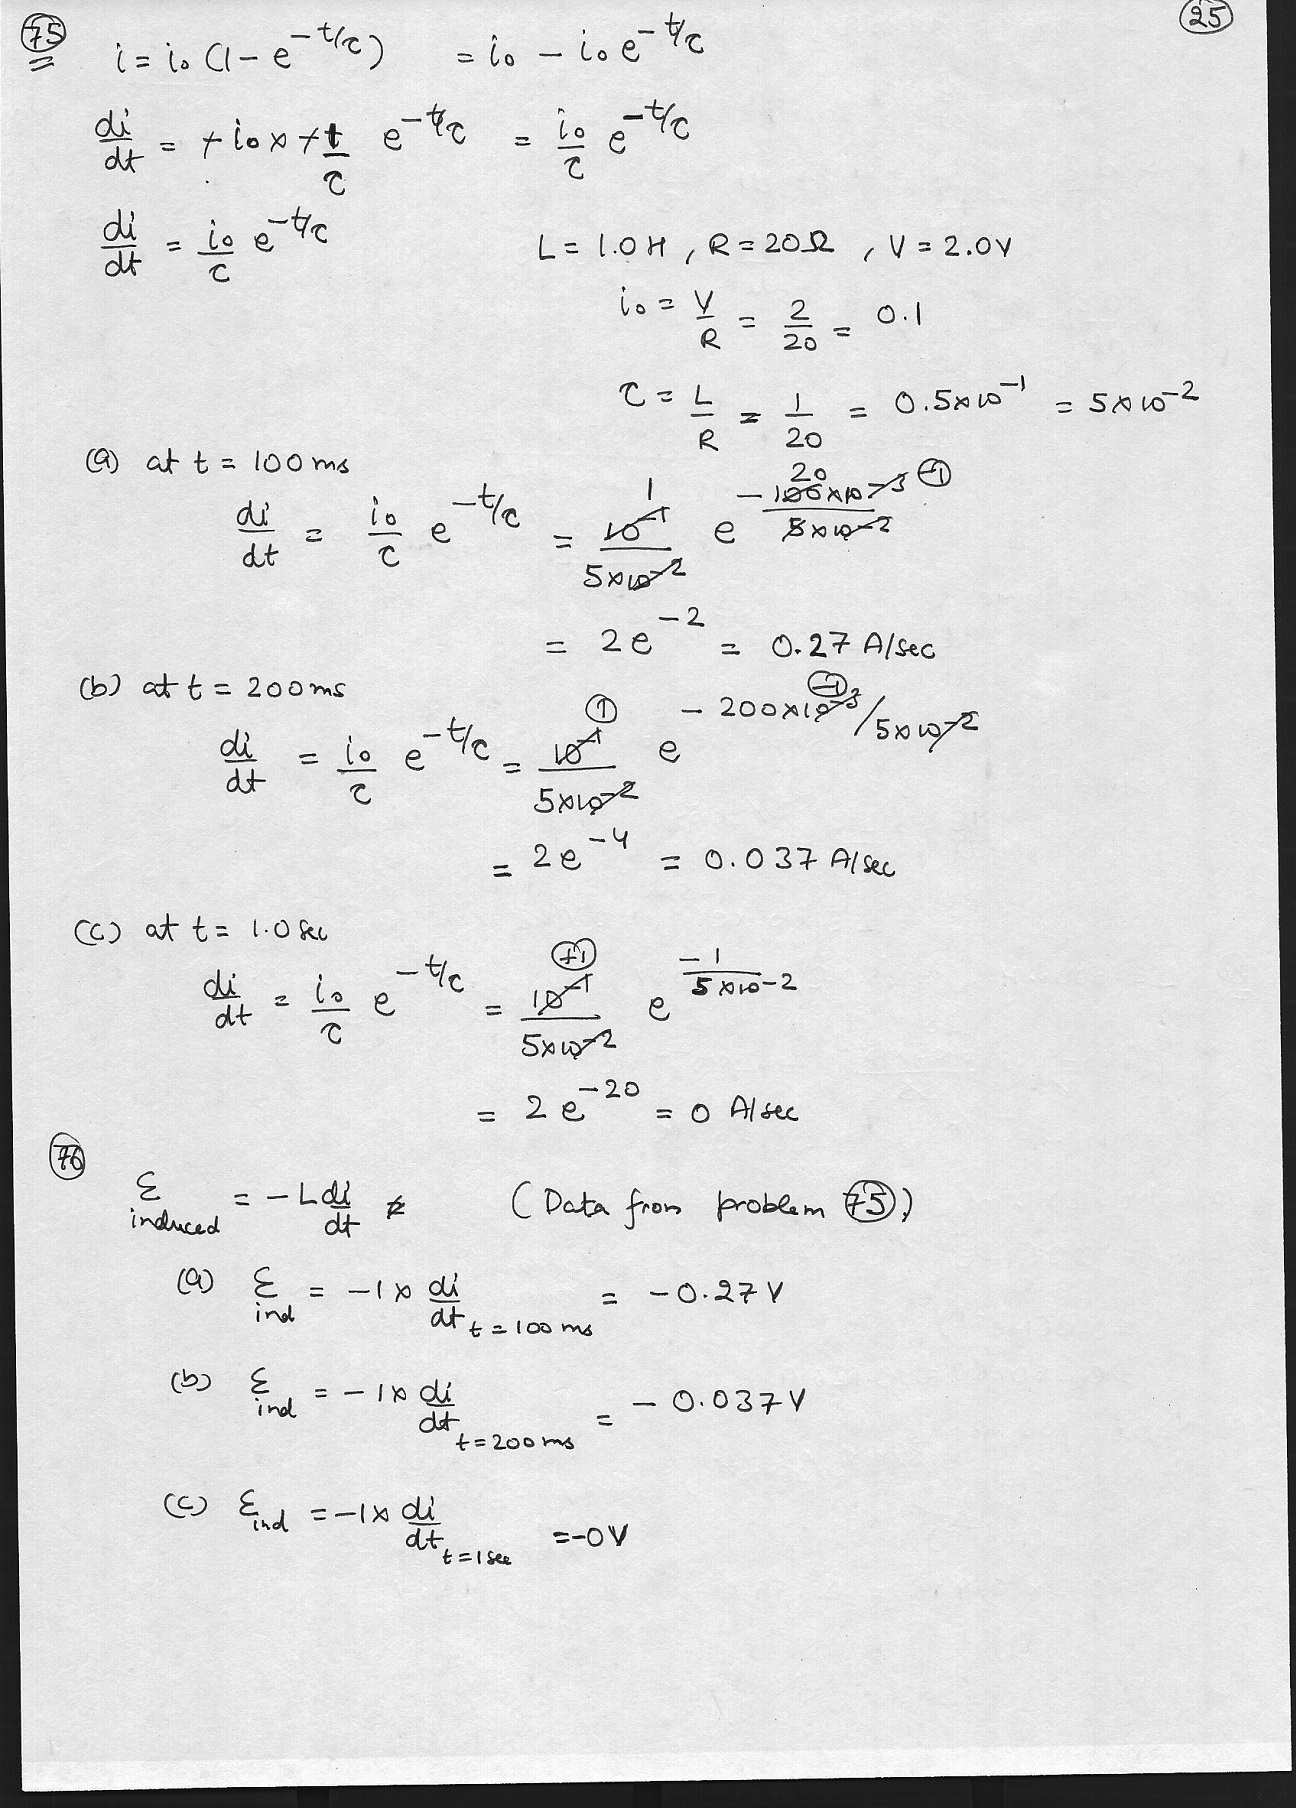 75 25
i = i₀ (1 - e^-t/τ) = i₀ - i₀ e^-t/τ
di/dt = + i₀ x + 1/τ e^-t/τ = i₀/τ e^-t/τ
di/dt = i₀/τ e^-t/τ L = 1.0 H, R = 20Ω, V = 2.0V
i₀ = V/R = 2/20 = 0.1
τ = L/R = 1/20 = 0.5x10^-1 = 5x10^-2
(a) at t = 100 ms
di/dt = i₀/τ e^-t/τ = 10^-1/5x10^-2 e^-100x10^-3/5x10^-2
= 2e^-2 = 0.27 A/sec
(b) at t = 200 ms
di/dt = i₀/τ e^-t/τ = 10^-1/5x10^-2 e^-200x10^-3/5x10^-2
= 2e^-4 = 0.037 A/sec
(c) at t = 1.0 sec
di/dt = i₀/τ e^-t/τ = 10^-1/5x10^-2 e^-1/5x10^-2
= 2e^-20 = 0 A/sec
76
ε induced = -L di/dt (Data from problem 75)
(a) ε ind = -1 x di/dt t = 100 ms = -0.27 V
(b) ε ind = -1 x di/dt t = 200 ms = -0.037 V
(c) ε ind = -1 x di/dt t = 1 sec = -0 V